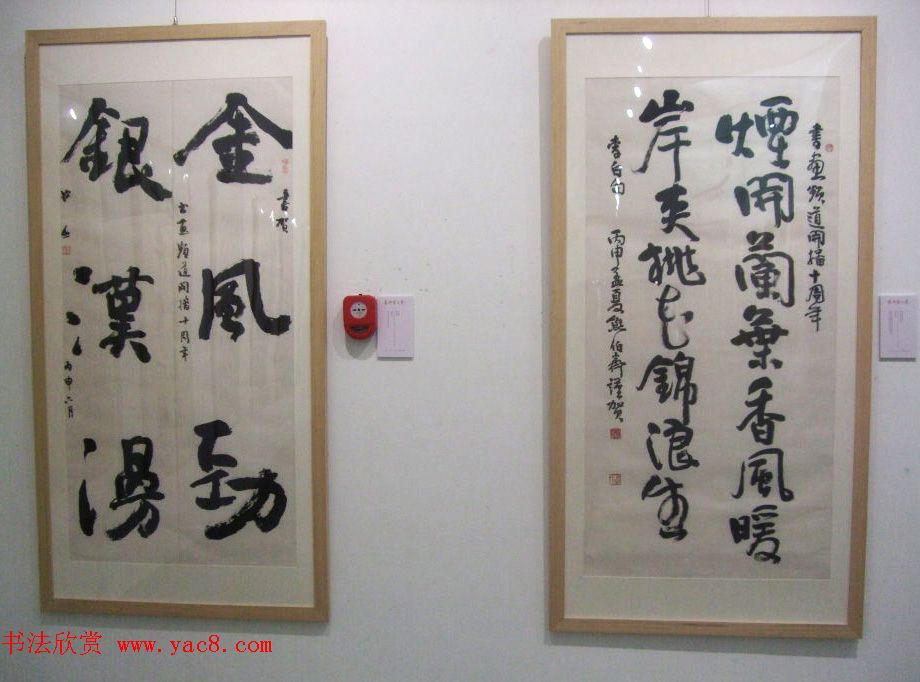 金風勁
銀漢湯
書賀
書畫頻道開播十周年
丙申六月
書畫頻道開播十周年
煙開蘭葉香風暖
岸夾桃花錦浪生
李白句 丙申孟夏熊伯齊謹賀
书法欣赏 www.yac8.com